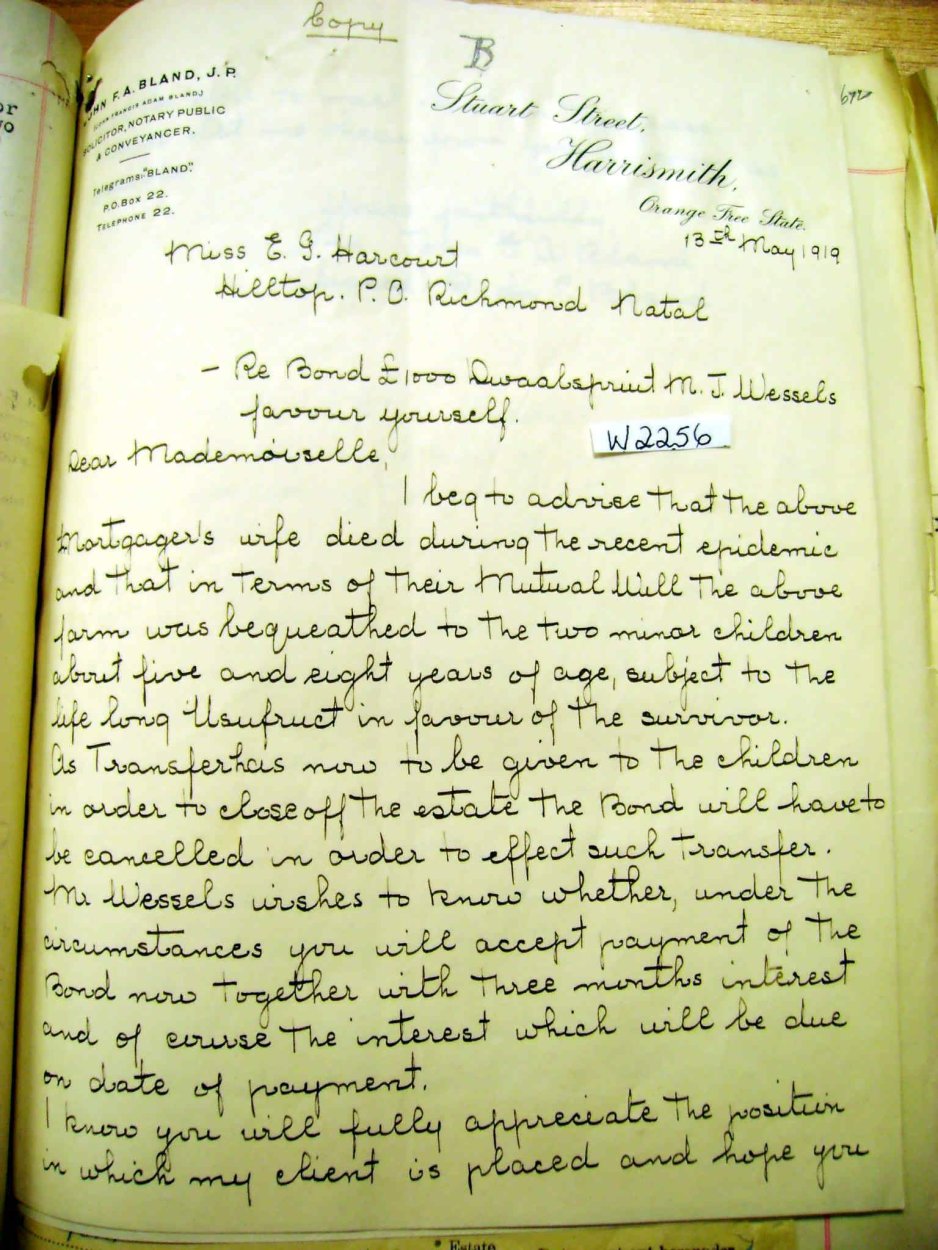 Copy
B
JOHN F. A. BLAND, J. P.
(JOHN FRANCIS ADAM BLAND)
SOLICITOR, NOTARY PUBLIC
& CONVEYANCER.
Telegrams: "BLAND".
P.O. BOX 22.
TELEPHONE 22.
Stuart Street,
Harrismith,
Orange Free State.
13th May 1919
Miss E. G. Harcourt
Hilltop. P. O. Richmond Natal
- Re Bond £1000 Dwaalspruit M. J. Wessels
favour yourself.
W2256
Dear Mademoiselle,
I beg to advise that the above
Mortgager's wife died during the recent epidemic
and that in terms of their Mutual Will the above
farm was bequeathed to the two minor children
about five and eight years of age, subject to the
life long Usufruct in favour of the survivor.
As Transfer has now to be given to the children
in order to close off the estate the Bond will have to
be cancelled in order to effect such Transfer.
Mr Wessels wishes to know whether, under the
circumstances you will accept payment of the
Bond now together with three months interest
and of course the interest which will be due
on date of payment.
I know you will fully appreciate the position
in which my client is placed and hope you
Estate